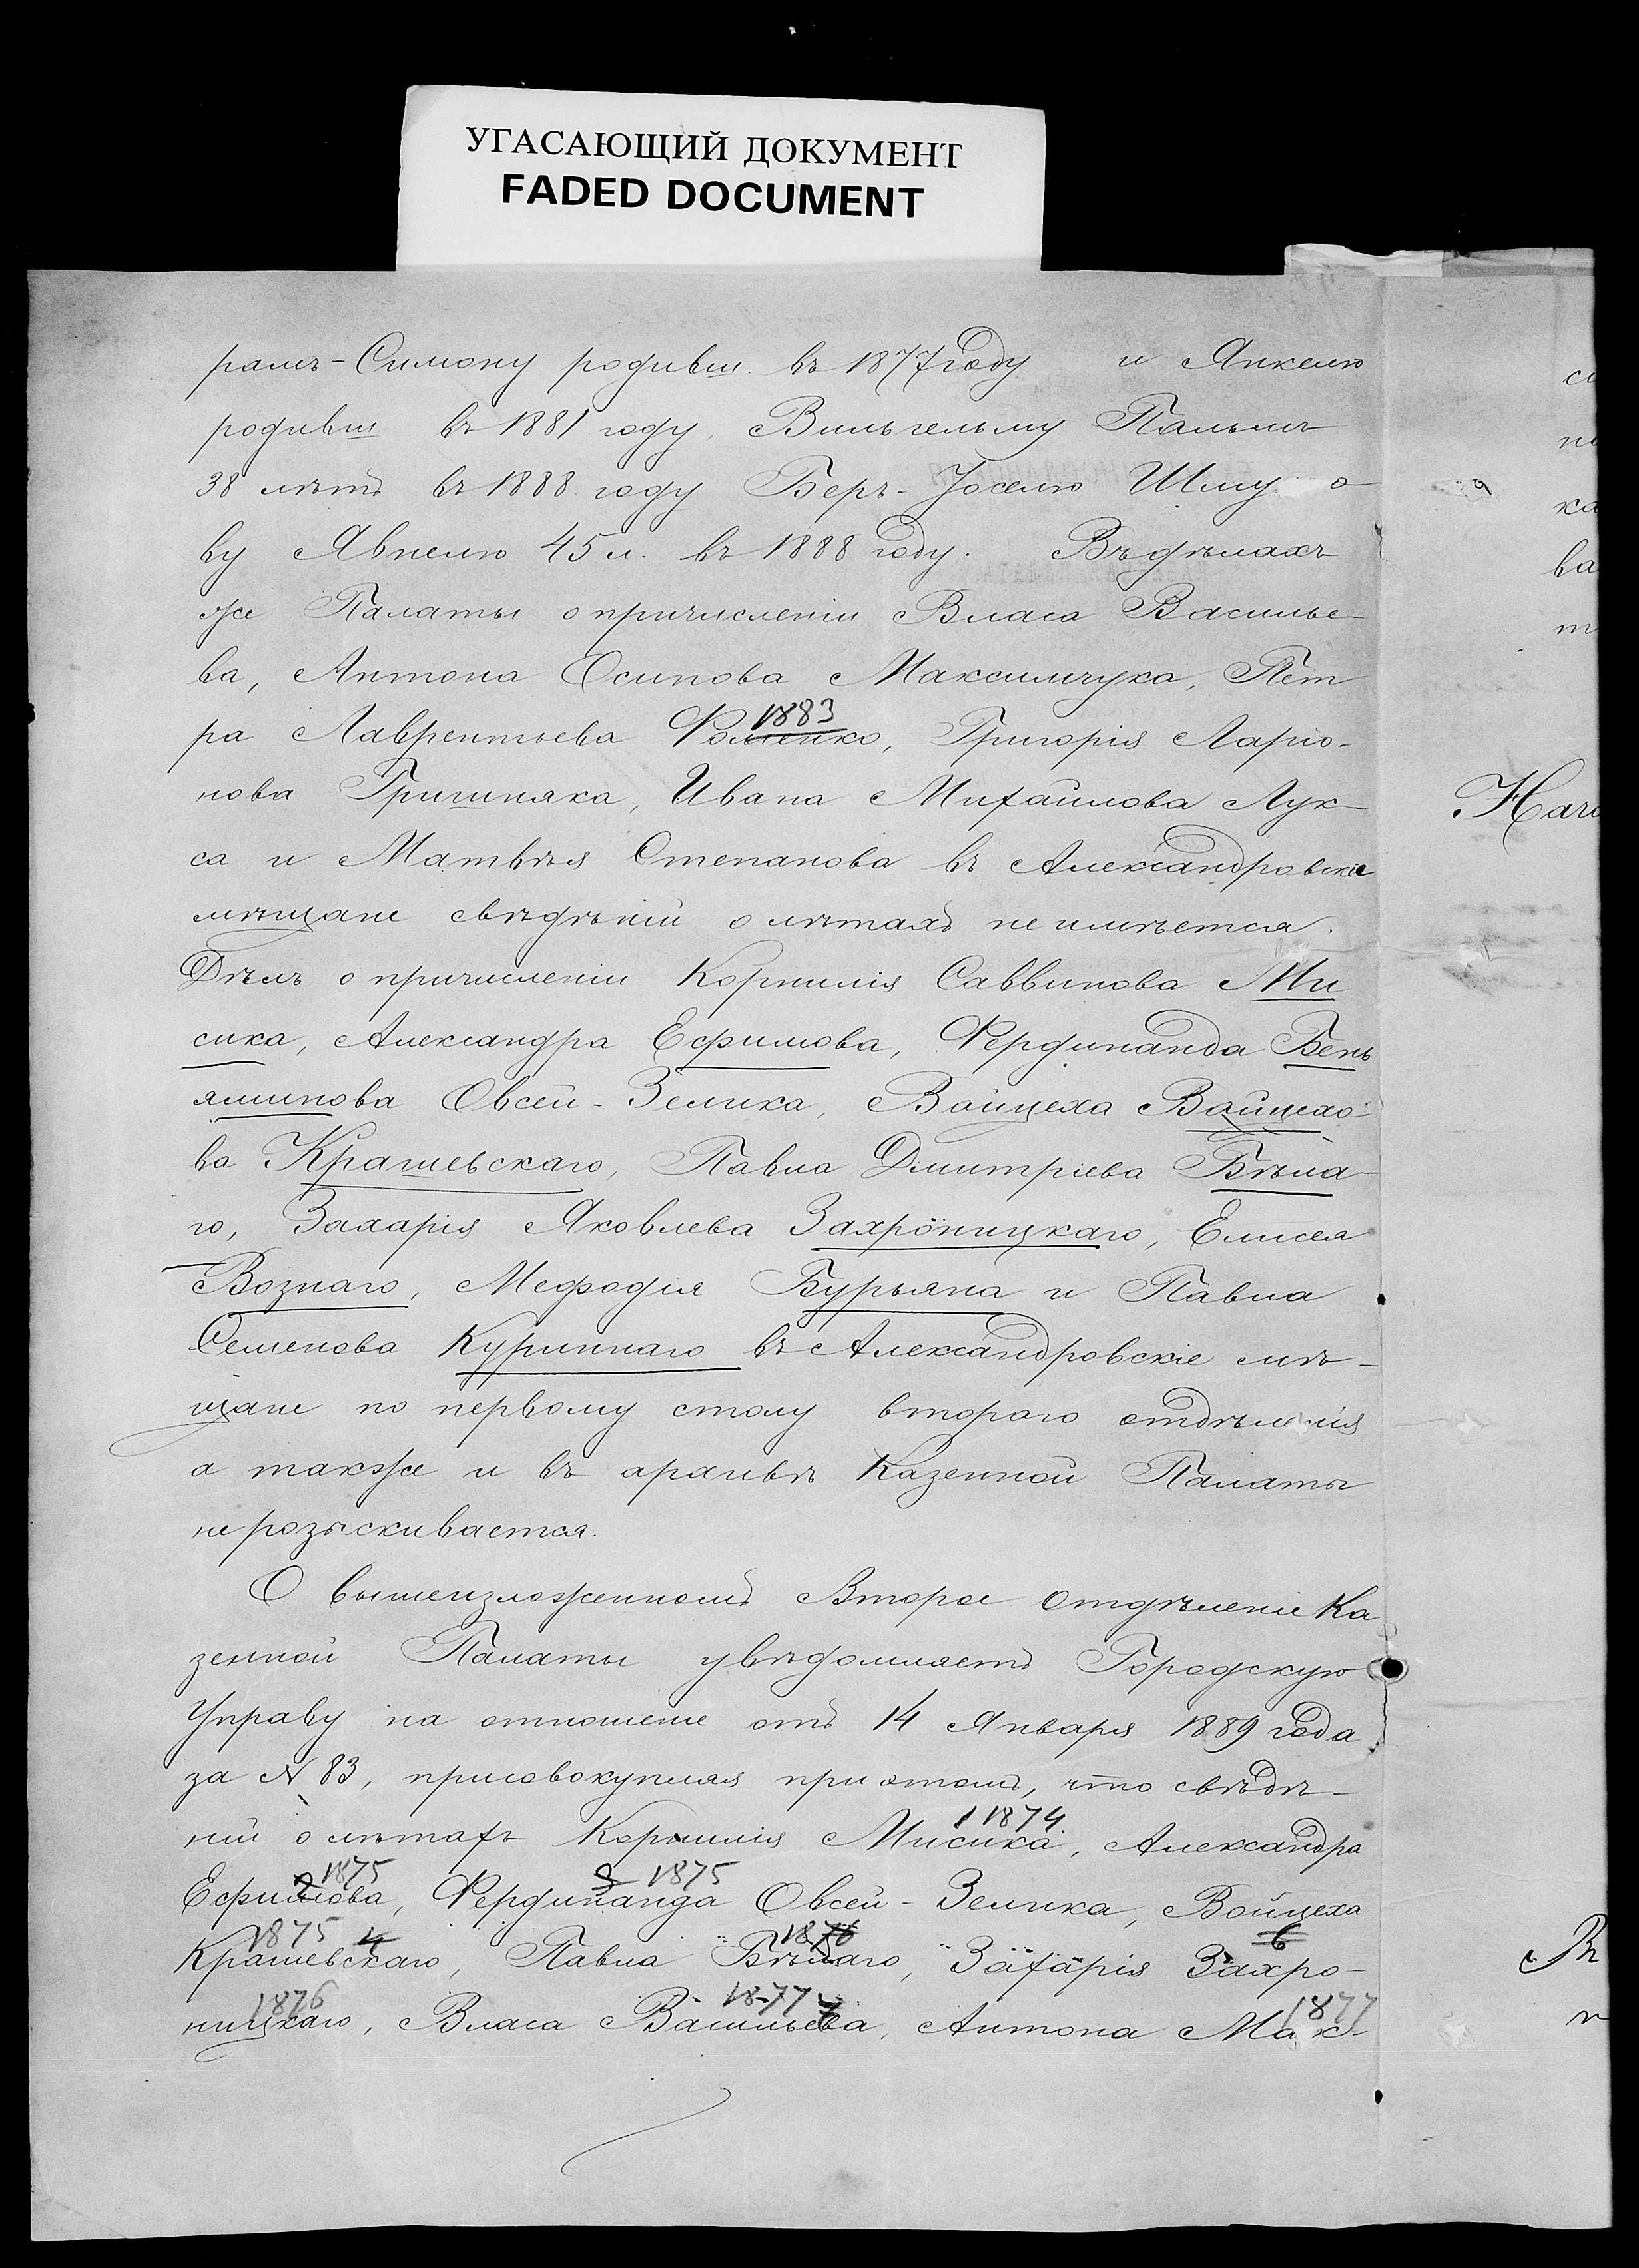 УГАСАЮЩИЙ ДОКУМЕНТ
FADED DOCUMENT
рамъ-Симону родивш. въ 1877 году и Янкелю
родивш въ 1881 году, Вильгельму Пальмъ
38 лѣтъ въ 1888 году Беръ-Іоселю Шму о
ву Явнелю 45 л. въ 1888 году. Въ дѣлахъ
же Палаты о причисленіи Власа Василье-
ва, Антона Осипова Максимчука, Пет
1883
ра Лаврентьева Фоменко, Григорія Ларіо-
нова Григиняка, Ивана Михайлова Лук-
са и Матвѣя Степанова въ Александровскіе
мѣщане свѣдѣній о лѣтахъ не имѣется.
Дѣлъ о причисленіи Корнилія Саввинова Ми
сика, Александра Ефимова, Фердинанда Бень
яминова Овсей-Зелика, Войцеха Войцехо-
ва Крашевскаго, Павла Дмитріева Бѣла-
го, Захарія Яковлева Захроницкаго, Елисея
Вознаго, Мефодія Бурьяна и Павла
Семенова Куриннаго въ Александровскіе мѣ-
щане по первому столу второго отдѣленія
а также и въ архивѣ Казенной Палаты
не розыскивается.
О вышеизложенномъ Второе Отдѣленіе Ка
зенной Палаты увѣдомляетъ Городскую
Управу на отношеніе отъ 14 Января 1889 года
за N 83, присовокупляя при этомъ, что свѣдѣ-
1874
ній о лѣтахъ Корнилія Мисика, Александра
1875 1875
Ефимова, Фердинанда Овсей-Зелика, Войцеха
1875 4 1876 6
Крашевскаго, Павла Бѣлаго, Захарія Захро-
1876 1877 1877
ницкаго, Власа Васильева, Антона Мак-